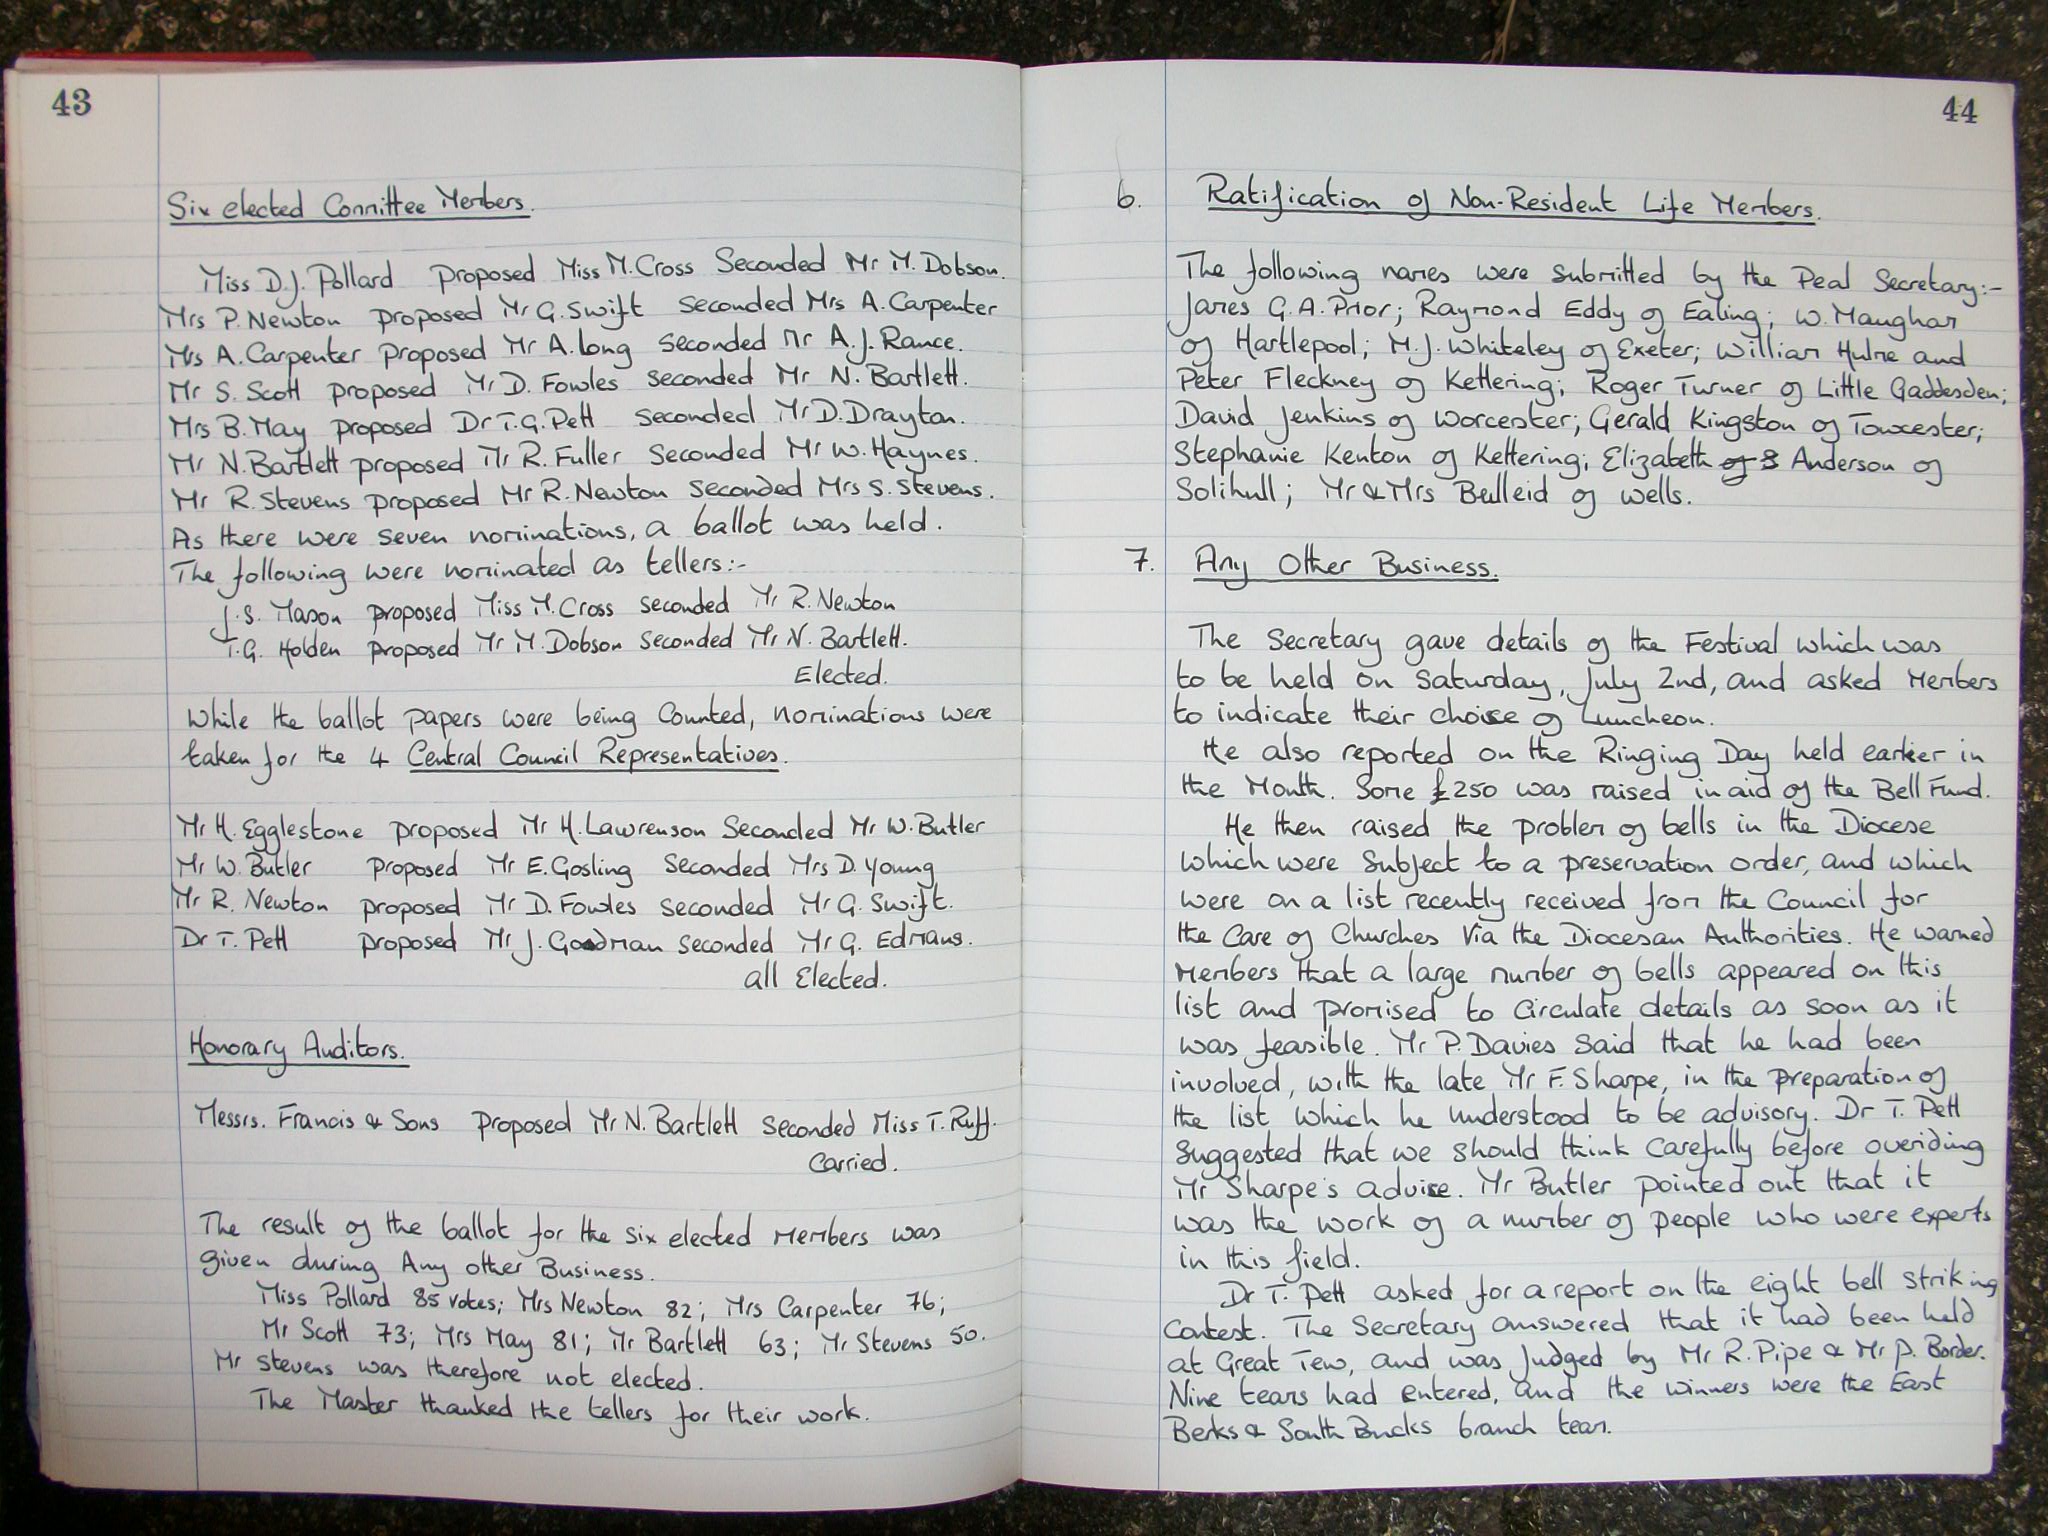 43
Six elected Committee Members.
Miss D.J. Pollard proposed Miss M. Cross Seconded Mr M. Dobson.
Mrs P. Newton proposed Mr G. Swift seconded Mrs A. Carpenter
Mrs A. Carpenter proposed Mr A. Long seconded Mr A.J. Rance.
Mr S. Scott proposed Mr D. Fowles seconded Mr N. Bartlett.
Mrs B. May proposed Dr T.G. Pett seconded Mr D. Drayton.
Mr N. Bartlett proposed Mr R. Fuller seconded Mr W. Haynes.
Mr R. Stevens proposed Mr R. Newton seconded Mrs S. Stevens.
As there were seven nominations, a ballot was held.
The following were nominated as tellers:-
J.S. Mason proposed Miss M. Cross seconded Mr R. Newton
T.G. Holden proposed Mr M. Dobson seconded Mr N. Bartlett.
Elected.
While the ballot papers were being counted, nominations were
taken for the 4 Central Council Representatives.
Mr H. Egglestone proposed Mr H. Lawrenson Seconded Mr W. Butler
Mr W. Butler proposed Mr E. Gosling seconded Mrs D. Young
Mr R. Newton proposed Mr D. Fowles seconded Mr G. Swift.
Dr T. Pett proposed Mr J. Goodman seconded Mr G. Edmans.
all Elected.
Honorary Auditors.
Messrs. Francis & Sons proposed Mr N. Bartlett seconded Miss T. Ruff.
Carried.
The result of the ballot for the six elected members was
given during Any other Business.
Miss Pollard 85 votes; Mrs Newton 82; Mrs Carpenter 76;
Mr Scott 73; Mrs May 81; Mr Bartlett 63; Mr Stevens 50.
Mr Stevens was therefore not elected.
The Master thanked the tellers for their work.
44
6. Ratification of Non-Resident Life Members.
The following names were submitted by the Peal Secretary:-
James G.A. Prior; Raymond Eddy of Ealing; W. Maughan
of Hartlepool; M.J. Whiteley of Exeter; William Hulme and
Peter Fleckney of Kettering; Roger Turner of Little Gaddesden;
David Jenkins of Worcester; Gerald Kingston of Towcester;
Stephanie Kenton of Kettering; Elizabeth of S Anderson of
Solihull; Mr & Mrs Bulleid of Wells.
7. Any Other Business.
The Secretary gave details of the Festival which was
to be held on Saturday, July 2nd, and asked members
to indicate their choice of Luncheon.
He also reported on the Ringing Day held earlier in
the Month. Some £250 was raised in aid of the Bell Fund.
He then raised the problem of bells in the Diocese
which were subject to a preservation order, and which
were on a list recently received from the Council for
the Care of Churches via the Diocesan Authorities. He warned
members that a large number of bells appeared on this
list and promised to circulate details as soon as it
was feasible. Mr P. Davies said that he had been
involved, with the late Mr F. Sharpe, in the preparation of
the list which he understood to be advisory. Dr T. Pett
suggested that we should think carefully before overiding
Mr Sharpe's advice. Mr Butler pointed out that it
was the work of a number of people who were experts
in this field.
Dr T. Pett asked for a report on the eight bell striking
Contest. The Secretary answered that it had been held
at Great Tew, and was judged by Mr R. Pipe & Mr P. Border.
Nine teams had entered, and the winners were the East
Berks & South Bucks branch team.